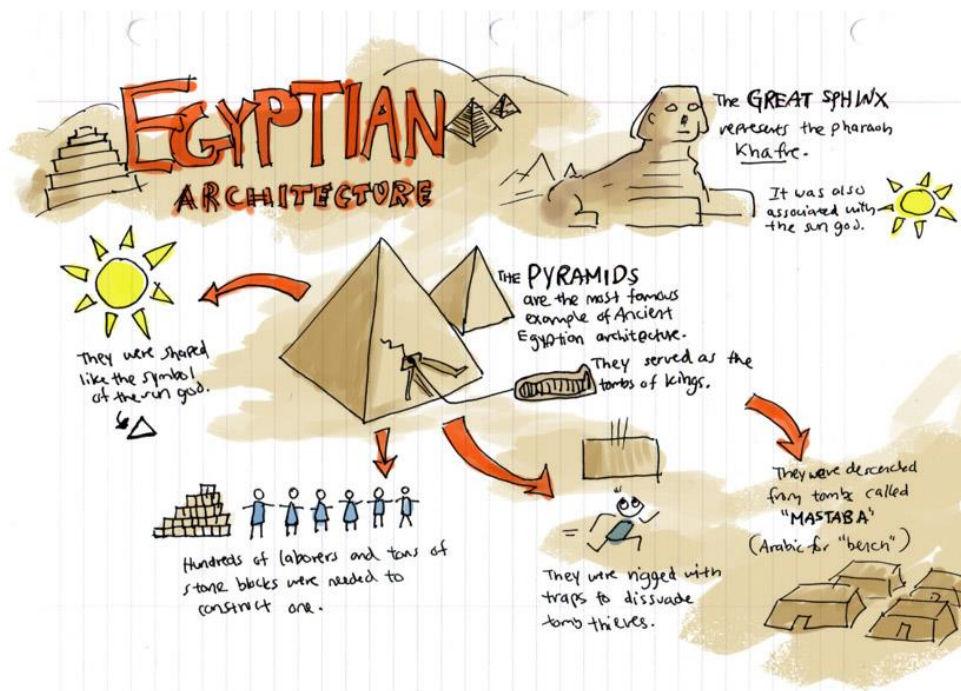 EGYPTIAN
ARCHITECTURE
The GREAT SPHINX
represents the pharaoh
Khafre.
It was also
associated with
the sun god.
THE PYRAMIDS
are the most famous
example of Ancient
Egyptian architecture.
They served as the
tombs of kings.
They were shaped
like the symbol
of the sun god.
Hundreds of laborers and tons of
stone blocks were needed to
construct one.
They were rigged with
traps to dissuade
tomb thieves.
They were descended
from tombs called
"MASTABA"
(Arabic for "bench")